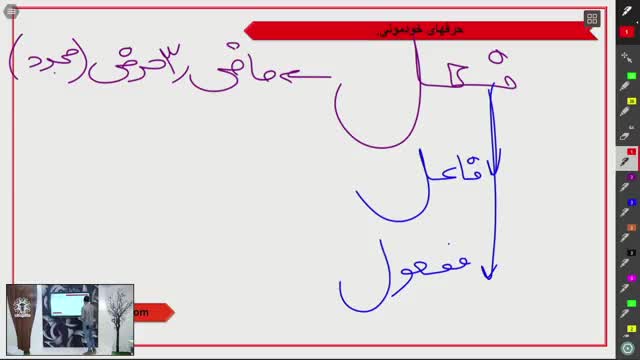 حرفهای خودمونی
فعل ← ماضی ۳ حرفی (مجرد)
فاعل
مفعول
om